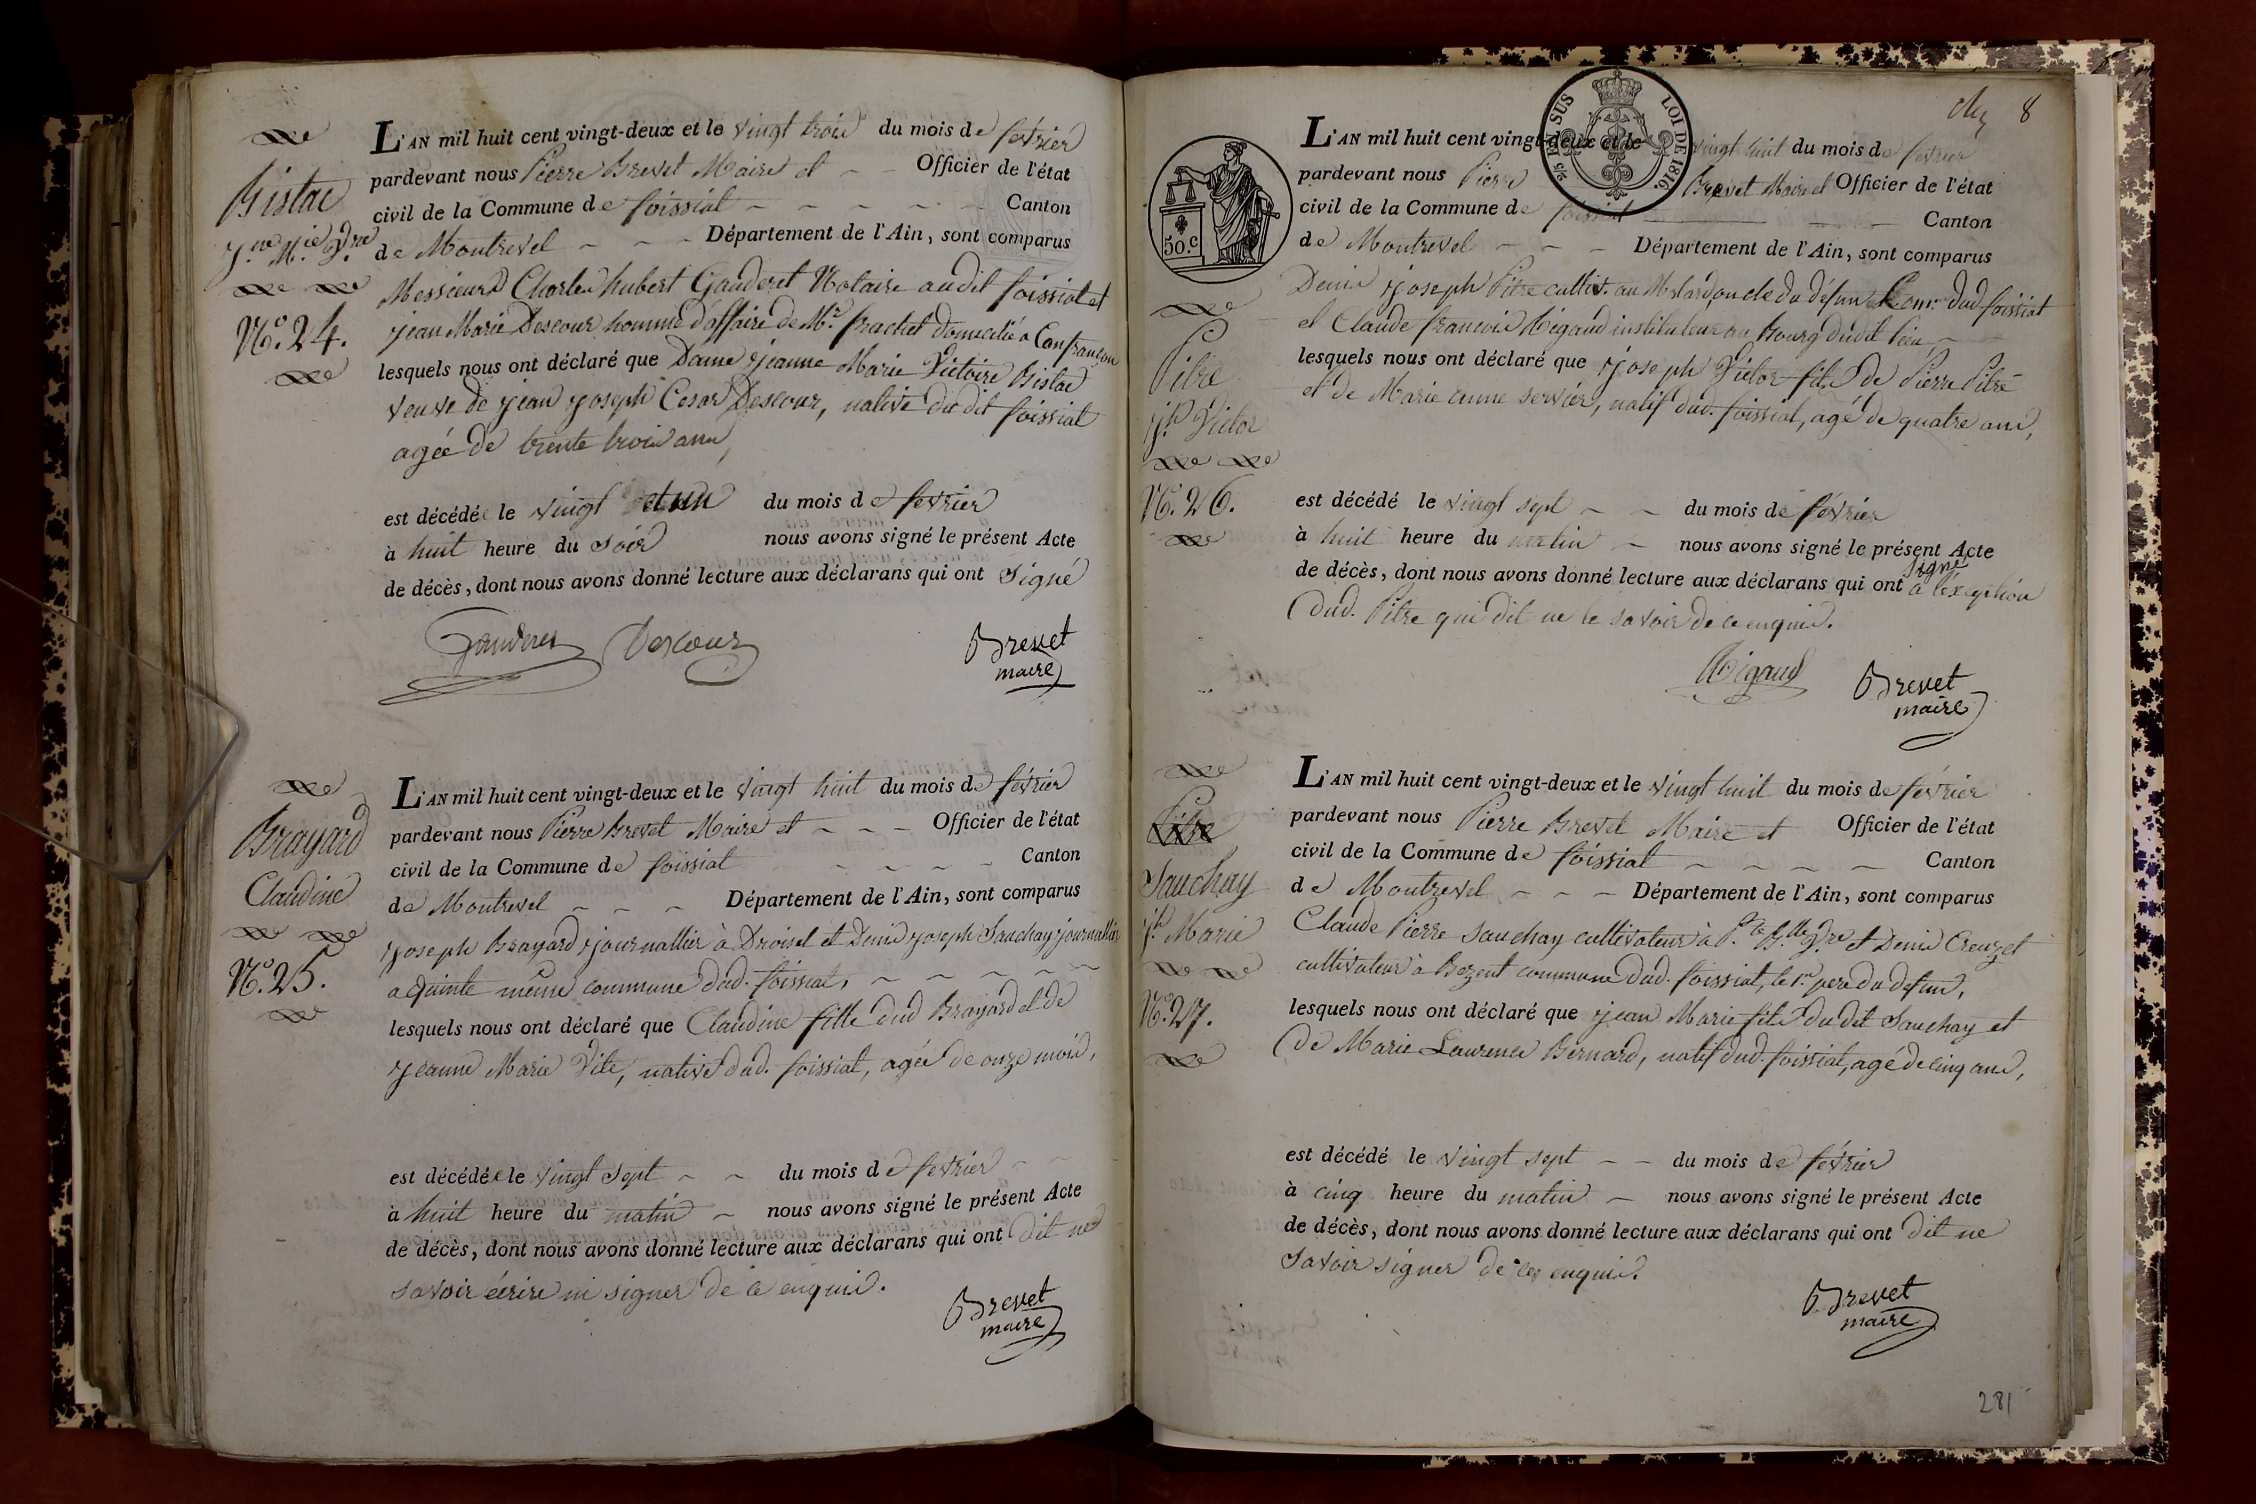 Bistac
J.ne M.ie V.re
N.o 24.
L'AN mil huit cent vingt-deux et le vingt trois du mois de fevrier
pardevant nous Pierre Brevet Maire et Officier de l'état
civil de la Commune de foissiat Canton
de Montrevel Département de l'Ain, sont comparus
Messieurs Charles hubert Gauderet Notaire audit foissiat et
jean Marie Descour homme d'affaire de Mr. frachet domicilié a Confrançon
lesquels nous ont déclaré que Dame jeanne Marie Victoire Bistac
veuve de jean joseph Cesar Descour, native du dit foissiat
agée de trente trois ans,
est décédée le vingt et un du mois de fevrier
à huit heure du soir nous avons signé le présent Acte
de décès, dont nous avons donné lecture aux déclarans qui ont signé
Gauderet Descour Brevet
maire
Brayard
Claudine
N.o 25.
L'AN mil huit cent vingt-deux et le vingt huit du mois de fevrier
pardevant nous Pierre Brevet Maire et Officier de l'état
civil de la Commune de foissiat Canton
de Montrevel Département de l'Ain, sont comparus
joseph Brayard journallier à Droisel et Denis joseph Sauchay journallier
a quinte même commune dud. foissiat,
lesquels nous ont déclaré que Claudine fille dud Brayard et de
jeanne Marie Vite, native dud. foissiat, agée de onze mois,
est décédée le vingt sept du mois de fevrier
à huit heure du matin nous avons signé le présent Acte
de décès, dont nous avons donné lecture aux déclarans qui ont dit ne
savoir écrire ni signer de ce enquis.
Brevet
maire
8
EN SUS LOI DE 1816.
50.c
Pitre
j.ph Victor
N.o 26.
L'AN mil huit cent vingt-deux et le vingt huit du mois de fevrier
pardevant nous Pierre Brevet Maire et Officier de l'état
civil de la Commune de foissiat Canton
de Montrevel Département de l'Ain, sont comparus
Denis joseph Pitre cultiv. au oncle du défunt Com. dud foissiat
et Claude francois Rigaud instituteur au Bourg dudit lieu
lesquels nous ont déclaré que joseph Victor fils de Pierre Pitre
et de Marie anne servier, natif dud. foissiat, agé de quatre ans,
est décédé le vingt sept du mois de fevrier
à huit heure du matin nous avons signé le présent Acte
de décès, dont nous avons donné lecture aux déclarans qui ont signé à l'exception
dud. Pitre qui dit ne le savoir de ce enquis.
Rigaud Brevet
maire
Pitre
Sauchay
j.n Marie
N.o 27.
L'AN mil huit cent vingt-deux et le vingt huit du mois de fevrier
pardevant nous Pierre Brevet Maire et Officier de l'état
civil de la Commune de foissiat Canton
de Montrevel Département de l'Ain, sont comparus
Claude Pierre Sauchay cultivateur à et Denis Creuzet
cultivateur à Bezent commune dud. foissiat, le 1.r pere du defunt,
lesquels nous ont déclaré que jean Marie fils du dit Sauchay et
de Marie Laurence Bernard, natif dud. foissiat, agé de cinq ans,
est décédé le vingt sept du mois de fevrier
à cinq heure du matin nous avons signé le présent Acte
de décès, dont nous avons donné lecture aux déclarans qui ont dit ne
savoir signer de ce enquis.
Brevet
maire
281